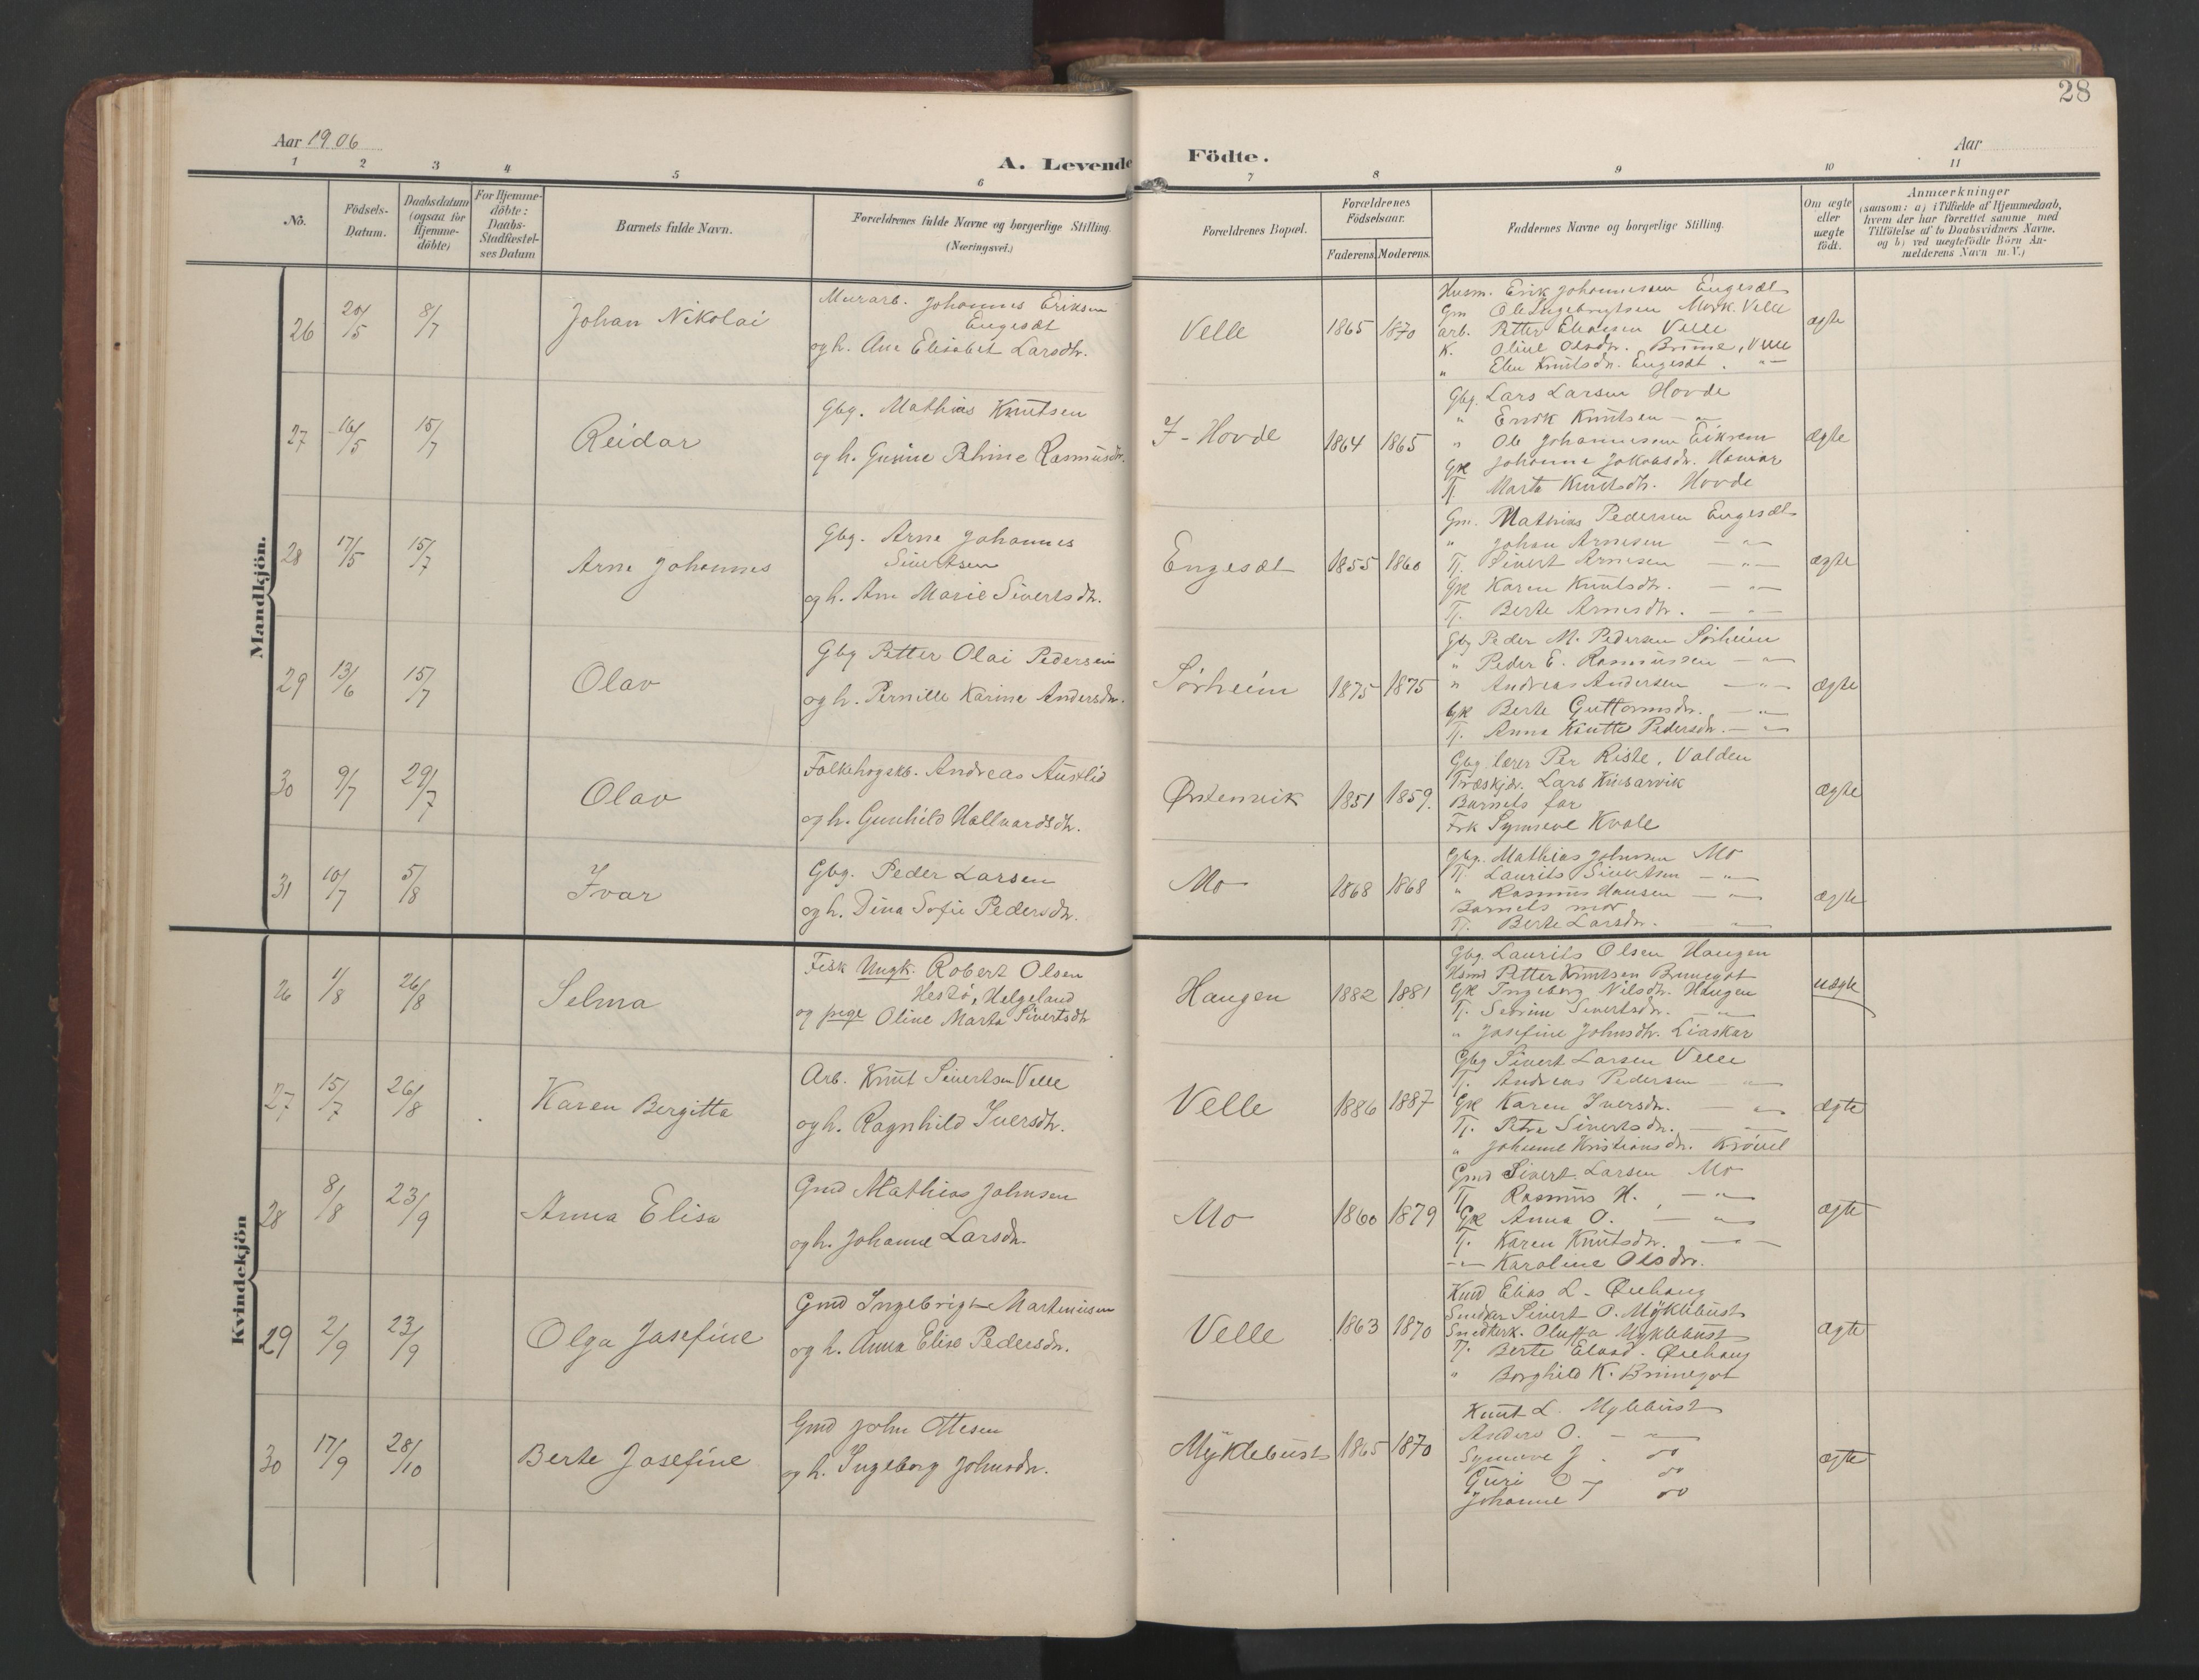 28
Aar 1906
A. Levende Födte.
Aar
1 2 3 4 5 6 7 8 9 10 11
No.
Födsels-
Datum.
Daabsdatum
(ogsaa for
Hjemme-
döbte)
For Hjemme-
döbte:
Daabs-
Stadfæstel-
ses Datum
Barnets fulde Navn.
Forældrenes fulde Navne og borgerlige Stilling.
(Næringsvei.)
Forældrenes Bopæl.
Forældrenes
Födselsaar.
Faderens. Moderens.
Faddernes Navne og borgerlige Stilling.
Om ægte
eller
uægte
födt.
Anmærkninger
(saasom: a) i Tilfælde af Hjemmedaab,
hvem der har forrettet samme med
Tilföielse af to Daabsvidners Navne.
og b) ved uægtefödte Börn An-
melderens Navn m. V.)
Mandkjön.
26 20/5 8/7 Johan Nikolai
Murarb. Johannes Eriksen
Engesæt
og h. Ane Elisabet Larsdtr.
Velle 1865 1870
Husm. Erik Johannesen Engesæt
Gm Ole Ingebrigtsen Mork. Velle
arb. Petter Eliassen Velle
K. Oline Olsdtr. Brune, Velle
" Elen Knutsdtr. Engesæt. -"-
ægte
27 16/5 15/7 Reidar
Gbg. Mathias Knutsen
og h. Gurine Rasmusdtr.
Y-Hovde 1864 1865
Gbg. Lars Larsen Hovde
" Endk Knutsen -"-
" Ole Johannesen Eikrem
Gk Johanne Jakobsdtr. Hovde
Tj. Marta Knutsdtr. Hovde
ægte
28 17/5 15/7 Arne Johannes
Gbg. Arne Johannes
Sivertsen
og h. Ane Marie Sivertsdtr.
Engesæt 1855 1860
Gm. Mathias Pedersen Engesæt
" Johan Arnesen -"-
Tj. Sivert Arnesen -"-
Gk Karen Knutsdtr. -"-
Tj. Berte Arnesdtr. -"-
ægte
29 13/6 15/7 Olav
Gbg Petter Olai Pedersen
og h. Pernille Karine Andersdtr.
Sörheim 1875 1875
Gbg Peder M. Pedersen Sörheim
" Peder E. Rasmussen -"-
" Andreas Andersen -"-
Gk Berte Guttormsdtr. -"-
Tj. Anna Knutte Pedersdtr. -"-
ægte
30 9/7 29/7 Olav
Folkehogskb. Andreas Austlid
og h. Gunhild Hallvardsdtr.
Ørstenvik 1851 1859.
Gbg lærer Per Riste, Volden
Præskjdr. Lars Kinsarvik
Barnets far
Frk Synneve Kvale
ægte
31 10/7 5/8 Ivar
Gbg. Peder Larsen
og h. Dina Sofie Pedersdtr.
Mo 1868 1868
Gbg. Mathias Johnsen Mo
Tj. Laurits Sivertsen -"-
" Rasmus Hansen -"-
Barnets mor
Tj. Berte Larsdtr. -"-
ægte
Kvindekjön
26 1/8 26/8 Selma
Fisk Ungk. Robert Olsen
Hestö, Helgeland
og pige Oline Marta Sivertsdtr
Haugen 1882 1881
Gbg. Laurits Olsen Haugen
Hsmd Petter Knutsen Brunegot
Gk Ingeborg Nilsdtr. Haugen
Tj. Severine Sivertsdtr. -"-
" Josefine Johnsdtr. Liaskar
uægte
27 15/7 26/8 Karen Bergitta
Arb. Knut Sivertsen Velle
og h. Ragnhild Iversdtr.
Velle 1886 1887
Gbg Sivert Larsen Velle
Tj. Andreas Pedersen -"-
Gk Karen Iversdtr. -"-
Tj. Petra Sivertsdtr. -"-
" Johanne Kristiansdtr. Krövel
ægte
28 8/8 23/9 Anna Elisa
Gmd Mathias Johnsen
og h. Johanne Larsdtr.
Mo 1860 1879
Gmd Sivert Larsen Mo
Tj Rasmus H. -"-
Gk Anna O. -"-
Tj. Karen Knutsdtr. -"-
-"- Karoline Olsdtr.
ægte
29 2/9 23/9 Olga Josefine
Gmd Ingebrigt Martinusen
og h. Anna Elise Pedersdtr.
Velle 1863 1870
Kmd Elias L. Örehaug
Snedker Sivert O. Myklebust
Snedkerk. Oluffa Myklebust
Tj. Berte Eliasd. Örehaug
" Borghild K. Brunegot
ægte
30 17/9 28/10 Berte Josefine
Gmd John Ottesen
og h. Ingeborg Johnsdtr.
Myklebust 1865 1870
Knut L. Myklebust
Anders O. -"-
Synneve J. do
Guri O do
Johanne J do
ægte